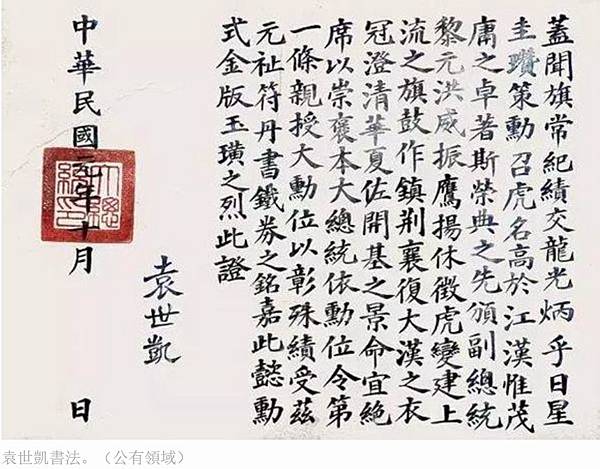 蓋聞旗常紀績交龍光炳乎日星
圭瓚策勳召虎名高於江漢惟茂
庸之卓著斯榮典之先頒副總統
黎元洪威振鷹揚休徵虎變建上
流之旗鼓作鎮荊襄復大漢之衣
冠澄清華夏佐開基之景命宜絕
席以崇褒本大總統依勳位令第
一條親授大勳位以彰殊績受茲
元祉符丹書鐵券之銘嘉此懿勳
式金版玉璜之烈此證
袁世凱
中華民國年十月 日
大總統印
袁世凱書法。（公有領域）